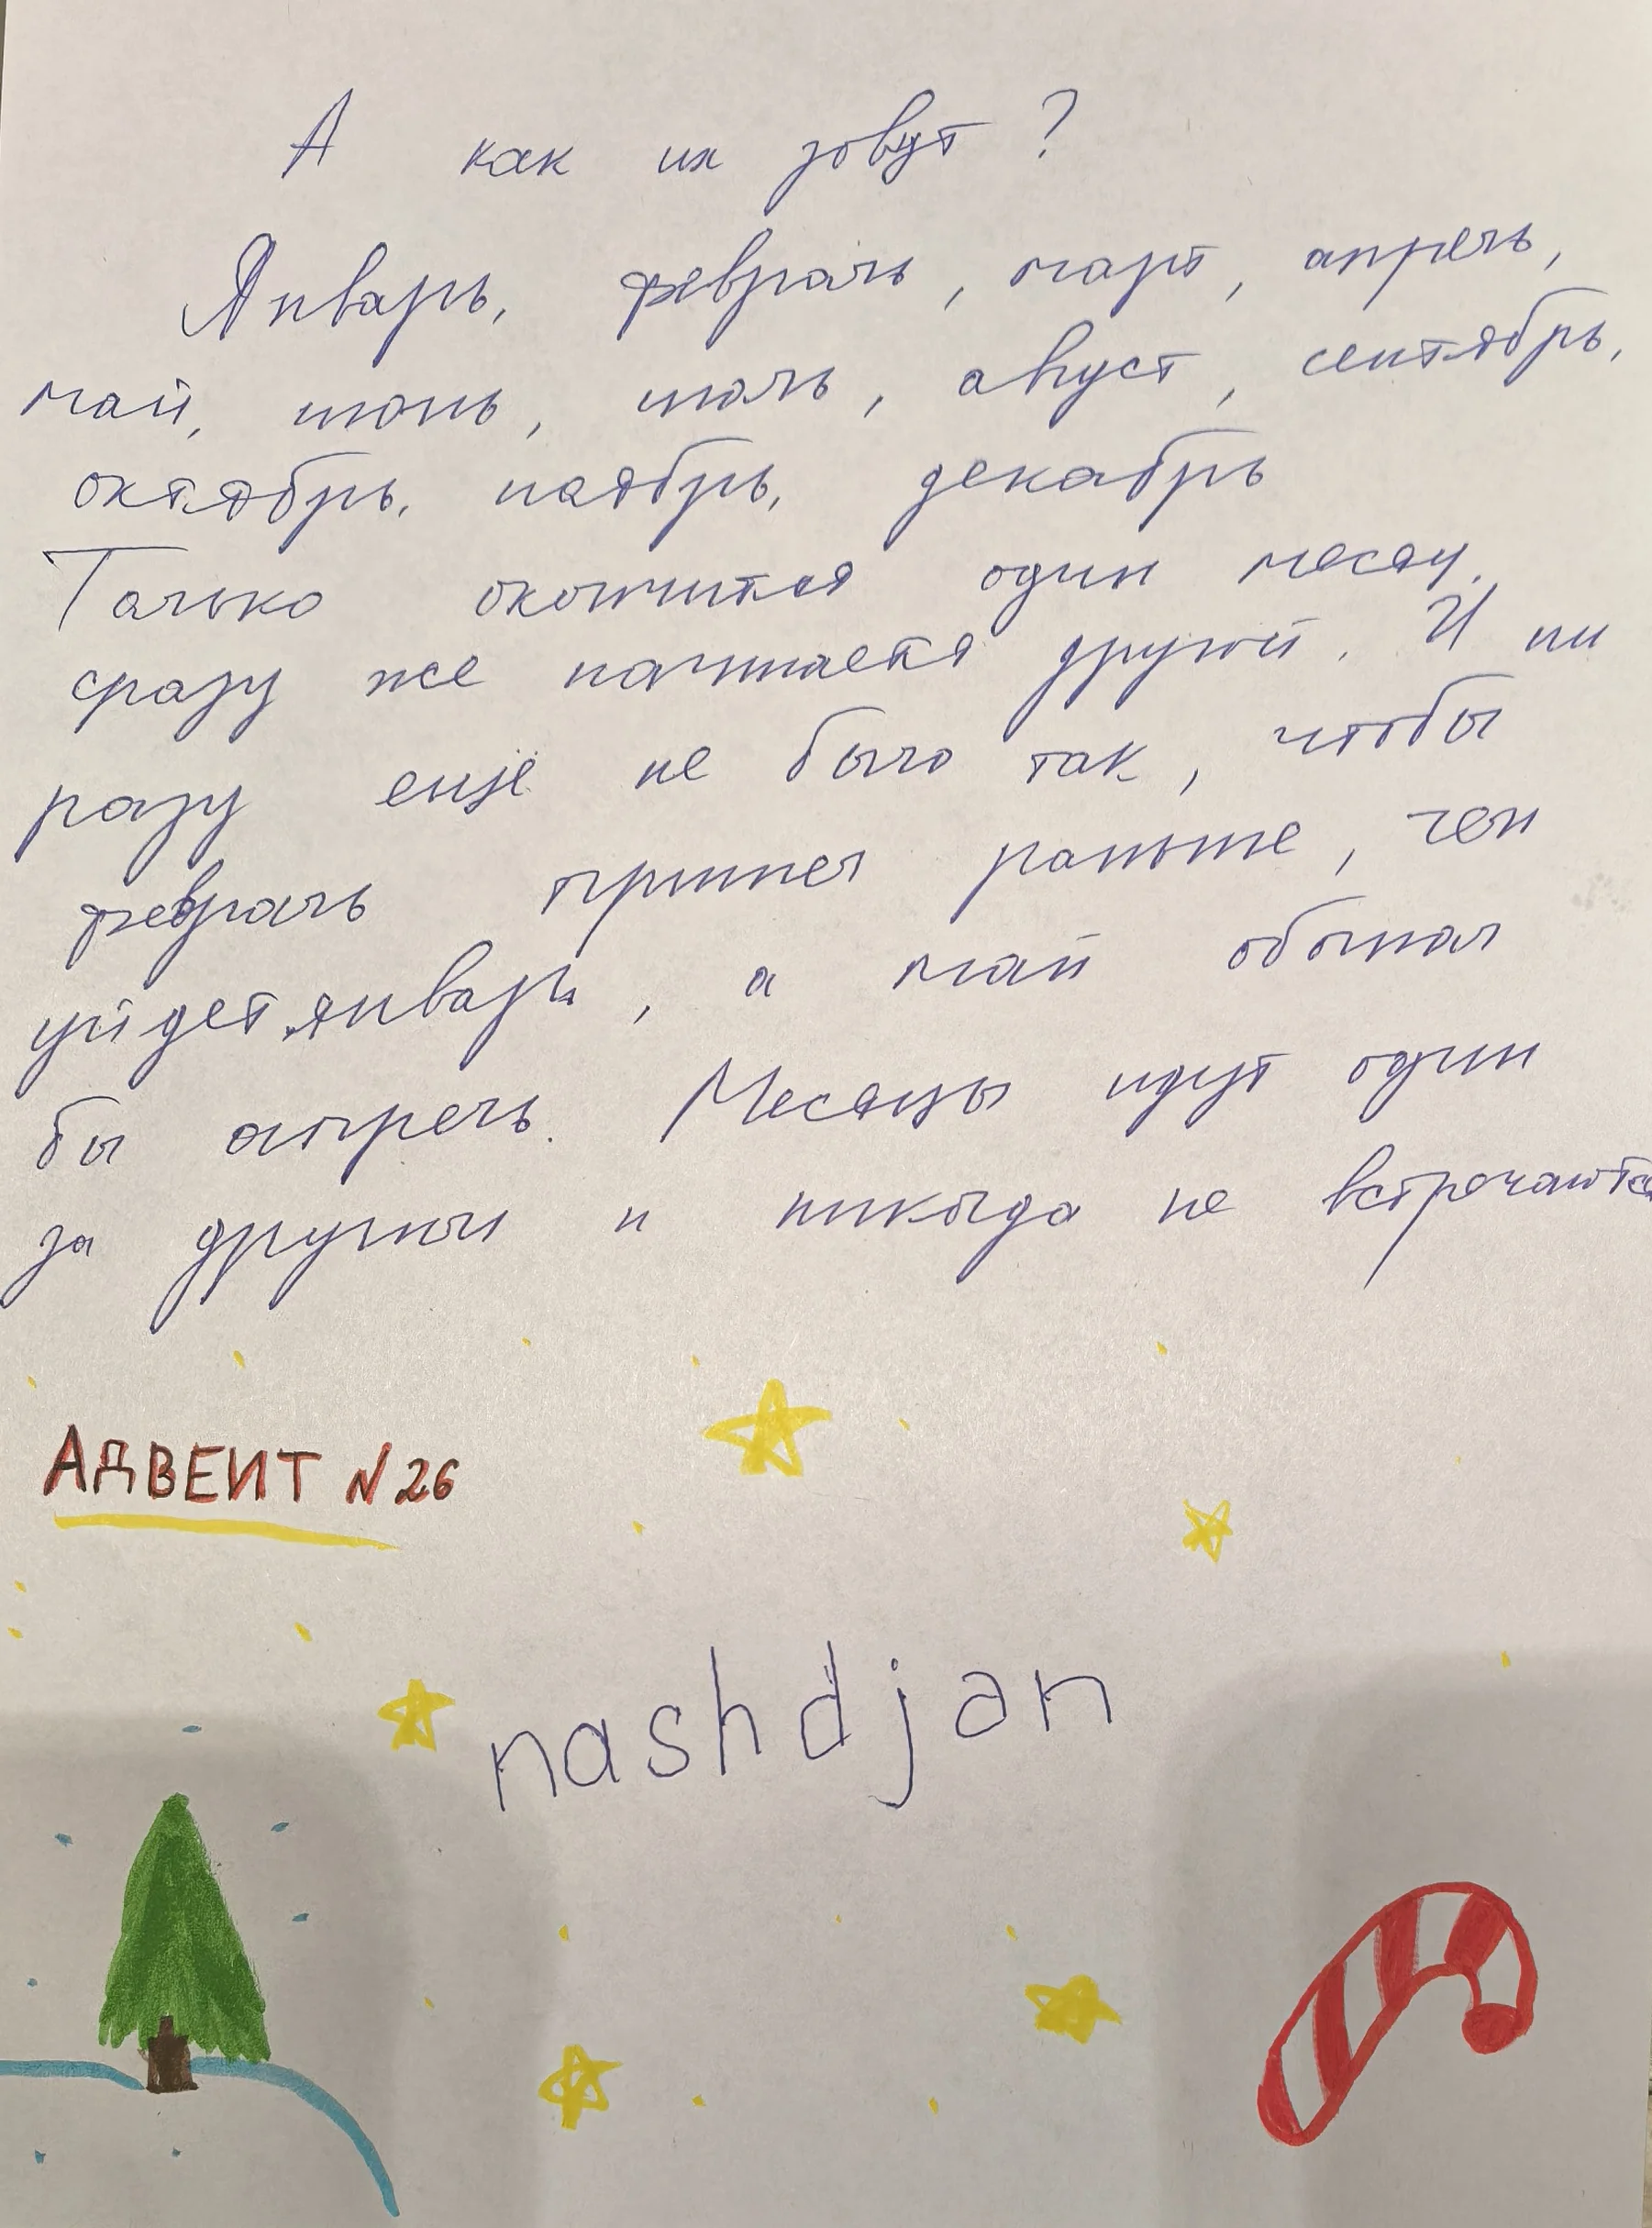 А как их зовут?
Январь, февраль, март, апрель,
май, июнь, июль, август, сентябрь,
октябрь, ноябрь, декабрь
Только окончится один месяц,
сразу же начинается другой. И ни
разу ещё не было так, чтобы
февраль пришел раньше, чем
уйдет январь, а май обогнал
бы апрель. Месяцы идут один
за другим и никогда не встречаются
АДВЕНТ N 26
nashdjan